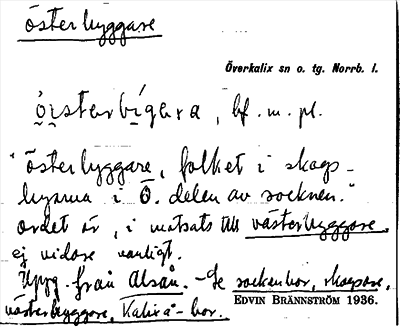 österbyggare
Överkalix sn o. tg. Norrb. l.
öisterbígara, bf. m. pl.
"österbyggare, folket i skogs-
byarna i Ö. delen av socknen."
ordet är, i motsats till västerbyggare,
ej vidare vanligt.
Uppg. från Alsån. – Se sockenbor, skogsare,
västerbyggare, Kalixå-bor.
EDVIN BRÄNNSTRÖM 1936.